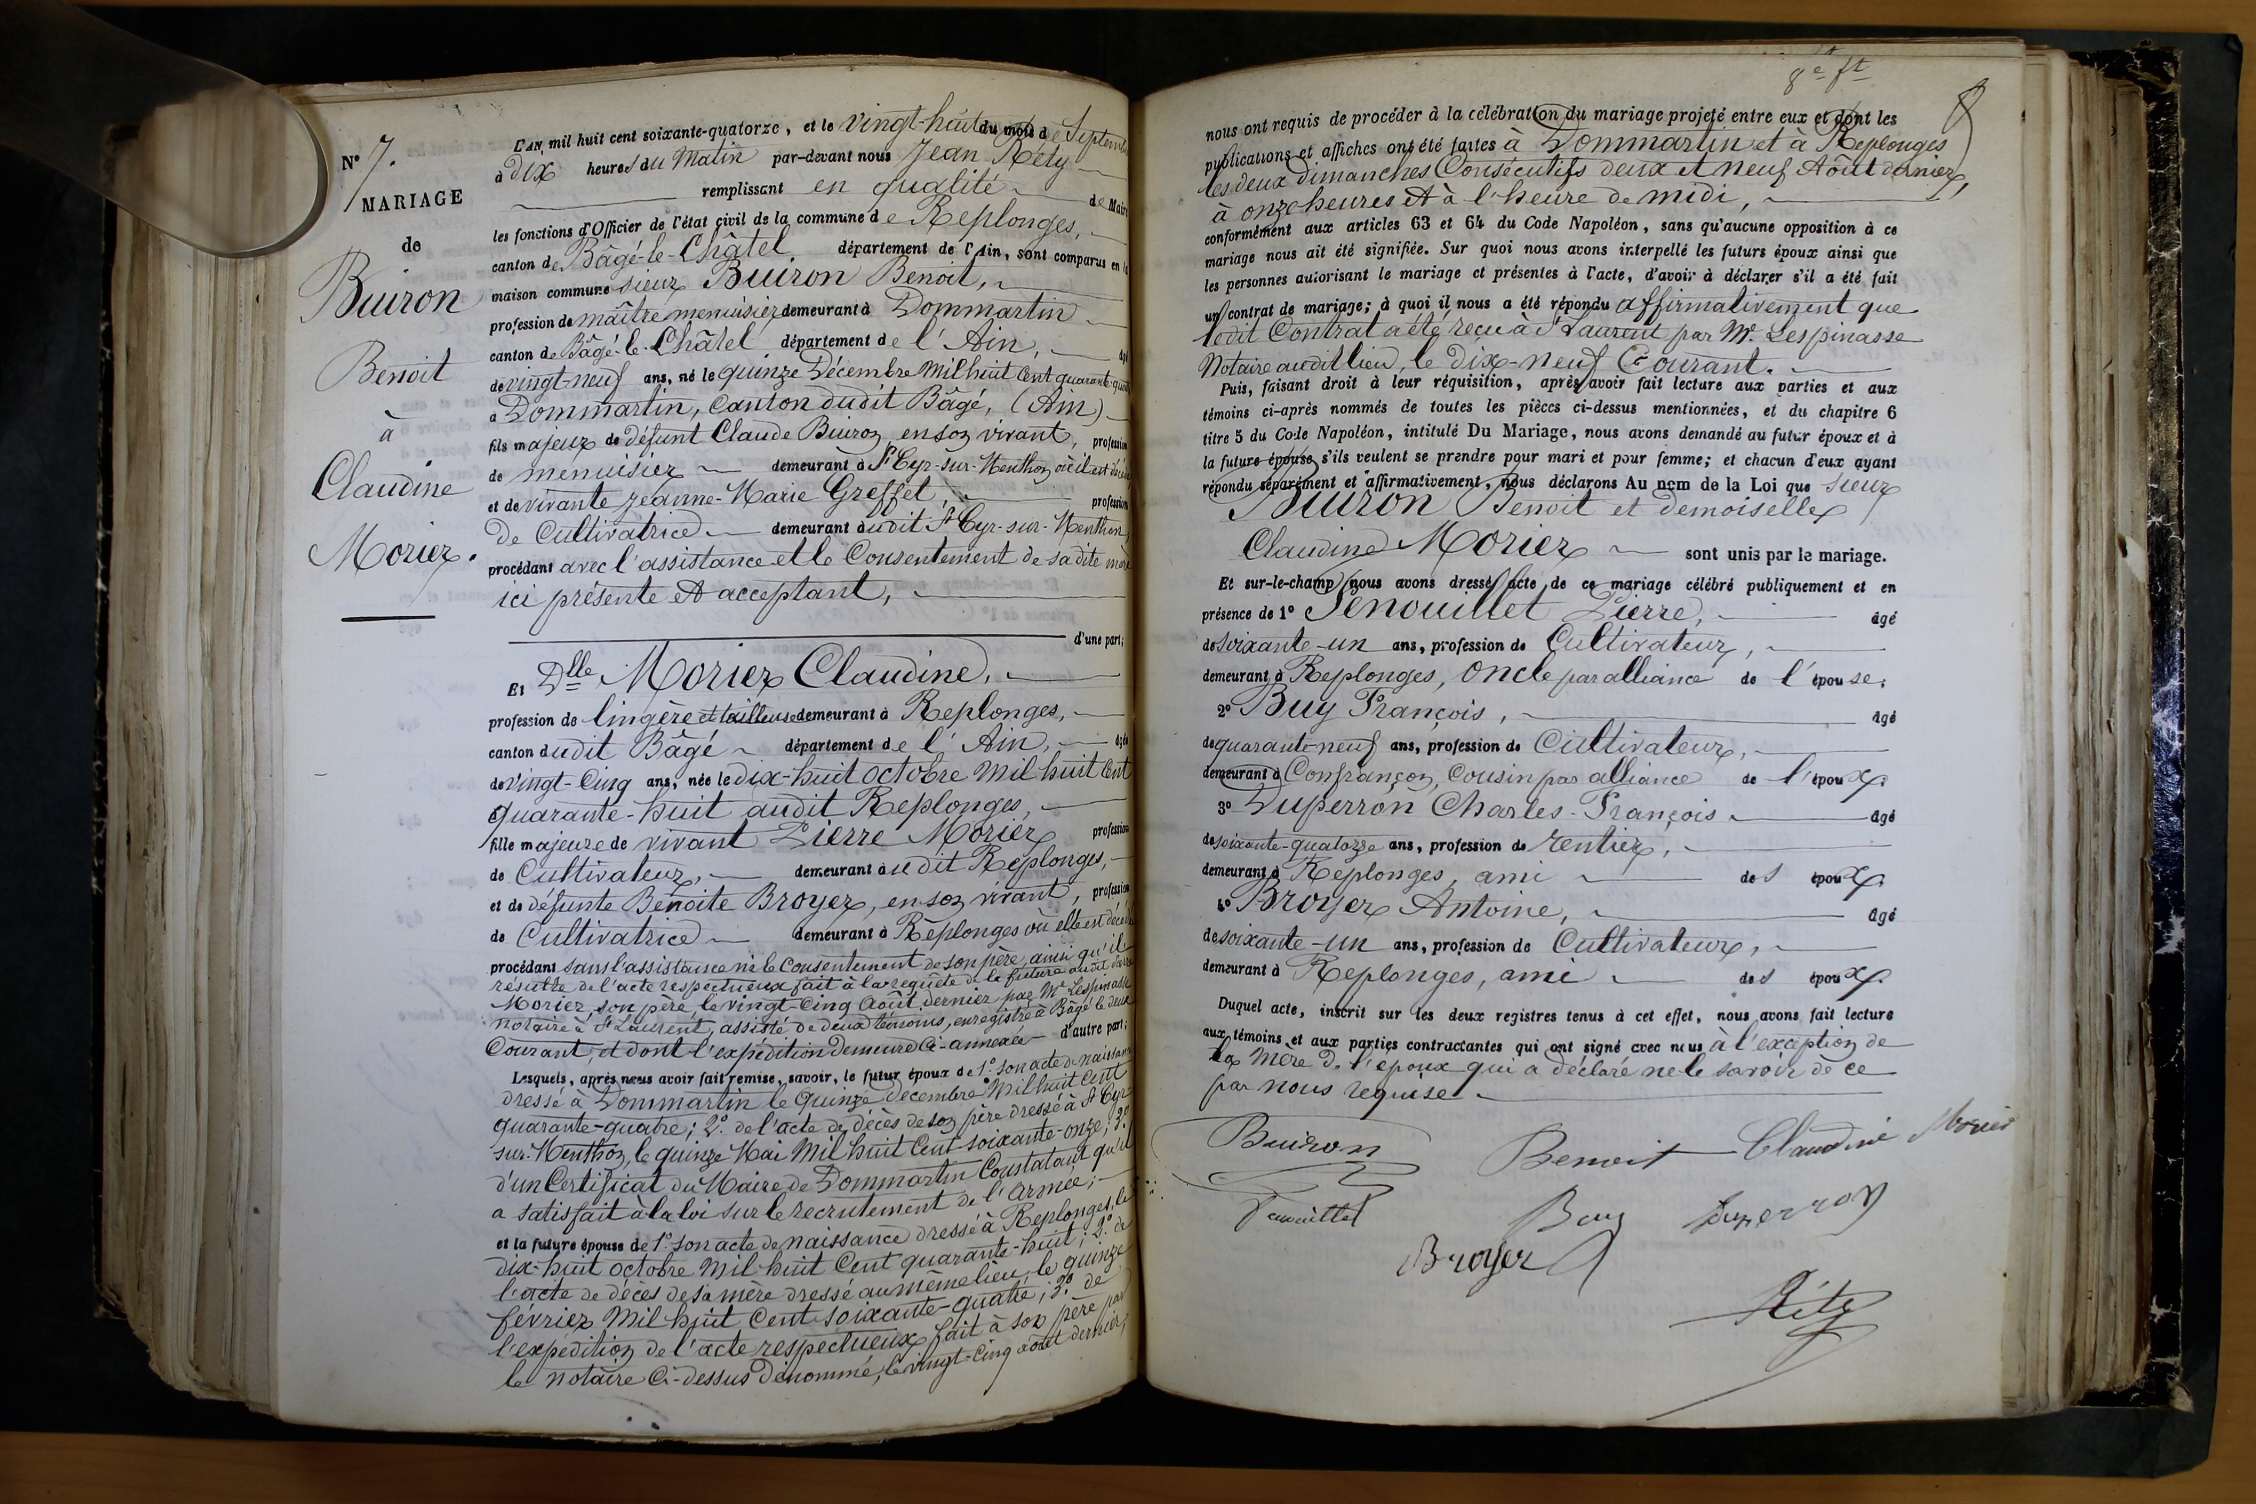 N° 7.
MARIAGE
de
Buiron
Benoit
à
Claudine
Morier.
L'AN, mil huit cent soixante-quatorze, et le vingt-huit du mois de Septem
à dix heures du Matin par-devant nous Jean Réty
remplissant en qualité de Maire
les fonctions d'Officier de l'état civil de la commune de Replonges,
canton de Bâgé-le-Châtel département de l'Ain, sont comparus en la
maison commune sieur Buiron Benoit,
profession de maître menuisier demeurant à Dommartin
canton de Bâgé-le-Châtel département de l'Ain, âgé
de vingt-neuf ans, né le quinze Décembre Mil huit Cent quarante-quat
à Dommartin, Canton dudit Bâgé, (Ain)
fils majeur de défunt Claude Buiron, en son vivant, profession
de menuisier demeurant à St Cyr-sur-Menthon où il est décé
et de vivante Jeanne-Marie Greffet, profession
De Cultivatrice demeurant audit St Cyr-sur-Menthon,
procédant avec l'assistance et le Consentement de sa dite mère
ici présente et acceptant,
d'une part;
Et Dlle Morier Claudine,
profession de lingère et tailleuse demeurant à Replonges,
canton dudit Bâgé département de l'Ain, âgée
de vingt-Cinq ans, née le dix-huit octobre Mil huit Cent
quarante-huit audit Replonges,
fille majeure de vivant Pierre Morier profession
de Cultivateur, demeurant audit Replonges,
et de défunte Benoite Broyer, en son vivant, profession
de Cultivatrice demeurant à Replonges où elle est décéd
procédant sans l'assistance ni le Consentement de son père, ainsi qu'il
résulte de l'acte respectueux fait à la requête de la future audit Pierre
Morier, son père, le vingt-Cinq Août dernier par Me Lespinasse
notaire à St Laurent, assisté de deux témoins, enregistré à Bâgé le deux
Courant, et dont l'expédition demeure Ci-annexée d'autre part;
Lesquels, après nous avoir fait remise, savoir, le futur époux de 1° son acte de naissance
dressé à Dommartin le Quinze décembre Mil huit Cent
quarante-quatre; 2° de l'acte de décès de son père dressé à St Cyr
sur-Menthon, le quinze Mai Mil huit Cent soixante-onze; 3°
d'un Certificat du Maire de Dommartin Constatant qu'il
a satisfait à la loi sur le recrutement de l'armée;
et la future épouse de 1° son acte de naissance dressé à Replonges, le
dix-huit octobre Mil huit Cent quarante-huit; 2° de
l'acte de décès de sa mère dressé au même lieu, le quinze
février Mil huit Cent soixante-quatre; 3° de
l'expédition de l'acte respectueux fait à son père par
le notaire Ci-dessus dénommé, le vingt-Cinq août dernier,
8e ft
8
nous ont requis de procéder à la célébration du mariage projeté entre eux et dont les
publications et affiches ont été faites à Dommartin et à Replonges
les deux Dimanches Consécutifs deux et neuf Août dernier,
à onze heures et à l'heure de midi,
conformément aux articles 63 et 64 du Code Napoléon, sans qu'aucune opposition à ce
mariage nous ait été signifiée. Sur quoi nous avons interpellé les futurs époux ainsi que
les personnes autorisant le mariage et présentes à l'acte, d'avoir à déclarer s'il a été fait
un contrat de mariage; à quoi il nous a été répondu affirmativement que
ledit Contrat a été reçu à St Laurent par Me Lespinasse
Notaire audit lieu, le dix-neuf Courant.
Puis, faisant droit à leur réquisition, après avoir fait lecture aux parties et aux
témoins ci-après nommés de toutes les pièces ci-dessus mentionnées, et du chapitre 6
titre 5 du Code Napoléon, intitulé Du Mariage, nous avons demandé au futur époux et à
la future épouse s'ils veulent se prendre pour mari et pour femme; et chacun d'eux ayant
répondu séparément et affirmativement, nous déclarons Au nom de la Loi que sieur
Buiron Benoit et demoiselle
Claudine Morier sont unis par le mariage.
Et sur-le-champ nous avons dressé acte de ce mariage célébré publiquement et en
présence de 1° Penouillet Pierre, âgé
de soixante-un ans, profession de Cultivateur,
demeurant à Replonges, oncle par alliance de l'épouse;
2° Buy François, âgé
de quarante-neuf ans, profession de Cultivateur,
demeurant à Confrançon, Cousin par alliance de l'époux.
3° Duperron Charles-François âgé
de soixante-quatorze ans, profession de rentier,
demeurant à Replonges, ami des époux.
4° Broyer Antoine, âgé
de soixante-un ans, profession de Cultivateur,
demeurant à Replonges, ami des époux.
Duquel acte, inscrit sur les deux registres tenus à cet effet, nous avons fait lecture
aux témoins et aux parties contractantes qui ont signé avec nous à l'exception de
la Mère de l'époux qui a déclaré ne le savoir de ce
par nous requise.
Buiron Benoit Claudine Morier
Buy Duperron
Broyer
Réty